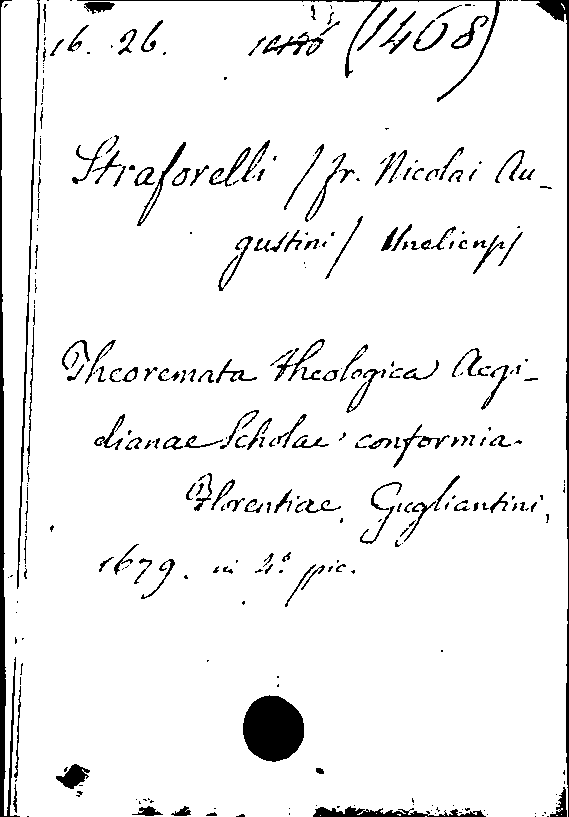 16. 26. (1468)
Straforelli / fr. Nicolai Au-
gustini /
Theoremata theologica Aegi-
dianae Scholae conformia.
Florentiae, Gugliantini,
1679. in 4.° pic.